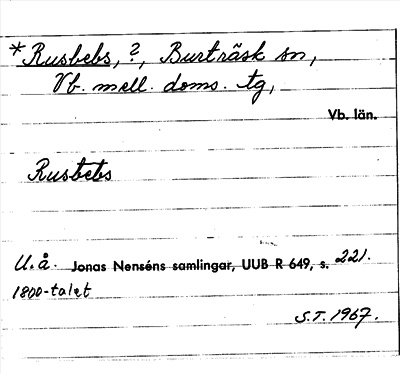 *Rusbebs, ?, Burträsk sn,
Vb. mell. doms. tg,
Vb. län.
Rusbebs
U.å. Jonas Nenséns samlingar, UUB R 649, s. 221.
1800-talet
S.T. 1967.